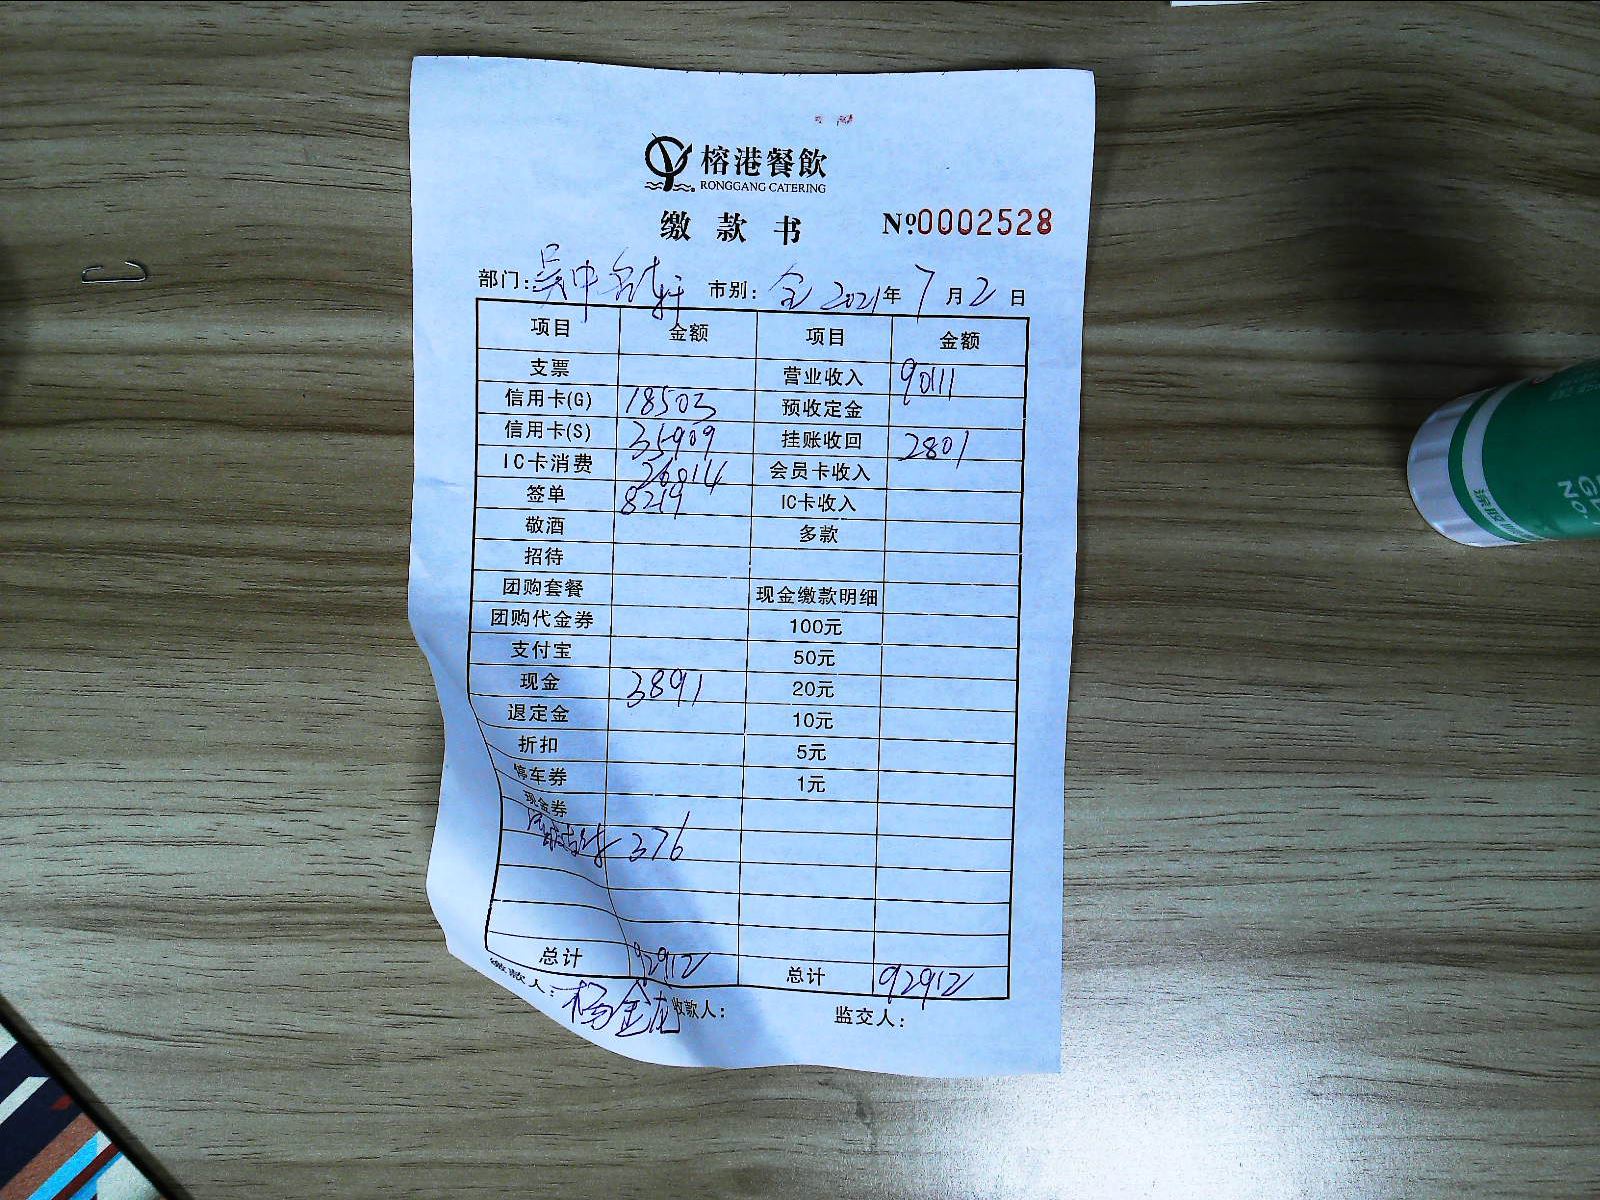 榕港餐飲
RONGGANG CATERING
缴款书 №0002528
部门:吴中名轩 市别:全 2021年7月2日
项目 金额 项目 金额
支票 营业收入 90111
信用卡(G) 18503 预收定金
信用卡(S) 35909 挂账收回 2801
IC卡消费 26014 会员卡收入
签单 8219 IC卡收入
敬酒 多款
招待
团购套餐 现金缴款明细
团购代金券 100元
支付宝 50元
现金 3891 20元
退定金 10元
折扣 5元
停车券 1元
现金券
376
总计 92912 总计 92912
缴款人:杨金 收款人: 监交人:
NO.